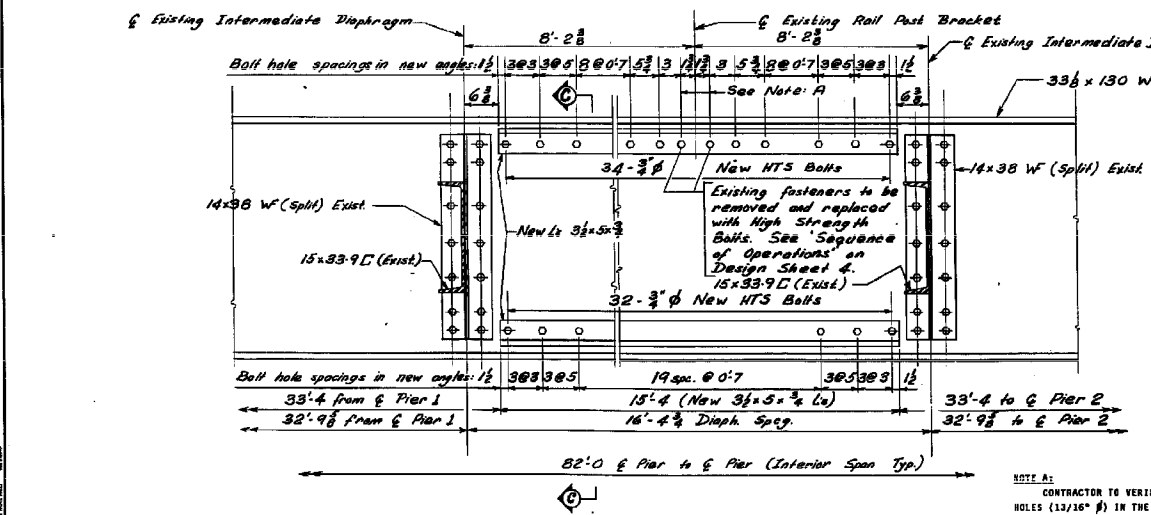 ℄ Existing Intermediate Diaphragm
℄ Existing Rail Post Bracket
8'-2⅜
8'-2⅜
℄ Existing Intermediate
Bolt hole spacings in new angles: 1½ 3@3 3@5 8@0'-7 5¾ 3 1¾ 1¾ 3 5¾ 8@0'-7 3@5 3@3 1½
33⅛ x 130 W
6⅜
C
See Note: A
6⅜
34-¾"ϕ New HTS Bolts
14x38 WF (Split) Exist.
14x38 WF (Split) Exist.
Existing fasteners to be
removed and replaced
with High Strength
Bolts. See "Sequence
of Operations" on
Design Sheet 4.
New Ls 3½x5x¾
15x33.9 ⊏ (Exist.)
15x33.9 ⊏ (Exist.)
32-¾"ϕ New HTS Bolts
Bolt hole spacings in new angles: 1½ 3@3 3@5 19 spc. @ 0'-7 3@5 3@3 1½
33'-4 from ℄ Pier 1
15'-4 (New 3½x5x¾ Ls)
33'-4 to ℄ Pier 2
32'-9⅝ from ℄ Pier 1
16'-4¾ Diaph. Spcg.
32'-9⅝ to ℄ Pier 2
82'-0 ℄ Pier to ℄ Pier (Interior Span Typ.)
C
NOTE A:
CONTRACTOR TO VERI
HOLES (13/16" ϕ) IN THE